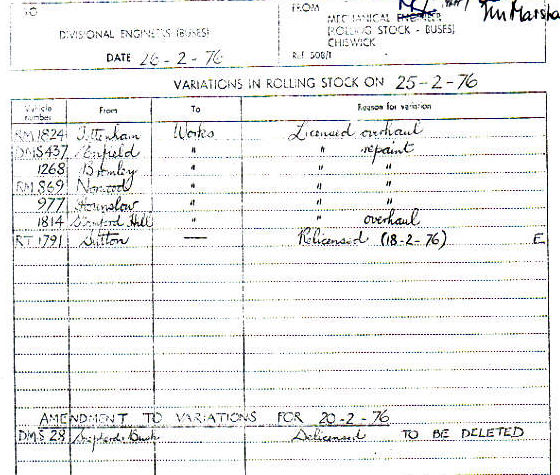 TO
DIVISIONAL ENGINEERS (BUSES)
DATE 26-2-76
FROM
MECHANICAL ENGINEER
(ROLLING STOCK - BUSES)
CHISWICK
REF 508/1
VARIATIONS IN ROLLING STOCK ON 25-2-76
Vehicle number From To Reason for variation
RM1824 Tottenham Works Licensed overhaul
DMS437 Enfield " " repaint
1268 Bromley " " "
RM869 Norwood " " "
977 Hounslow " " "
1814 Stamford Hill " " overhaul
RT1791 Sutton — Relicensed (18-2-76) E
AMENDMENT TO VARIATIONS FOR 20-2-76
DMS 28 Shepherds Bush Delicensed TO BE DELETED